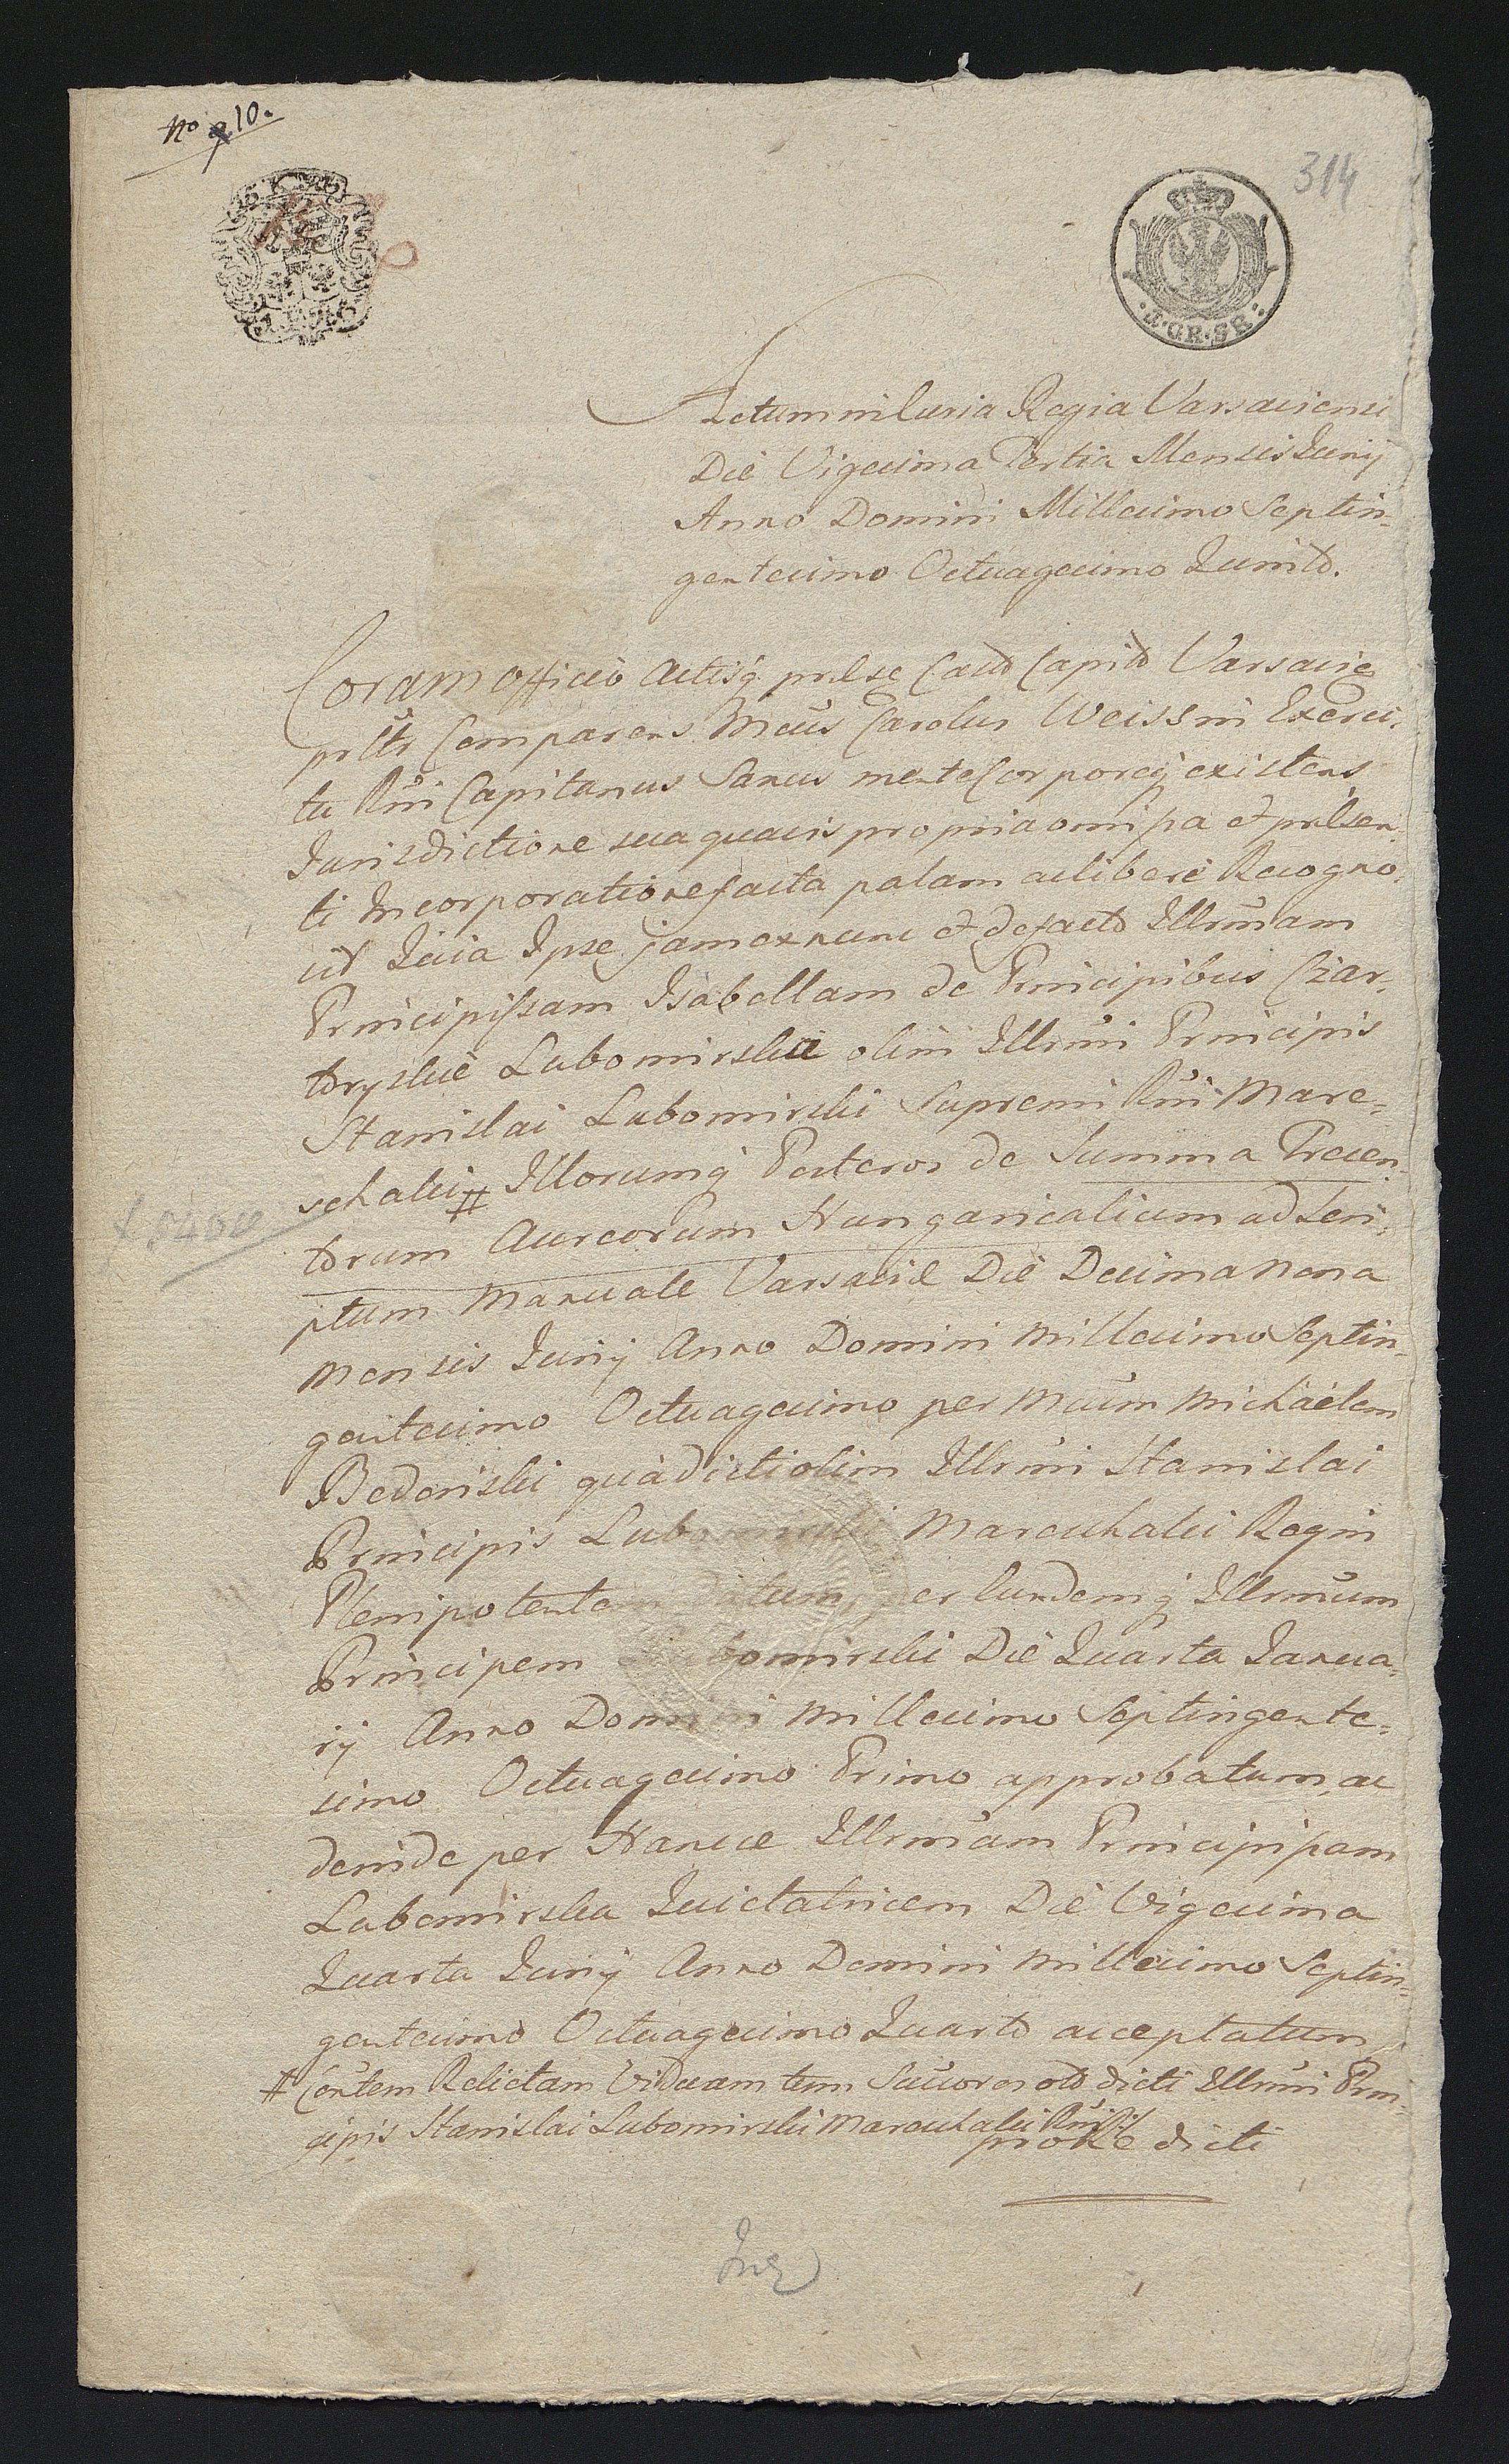 No 10.
314
·Z·GR·SR:
Actum in Curia Regia Varsaviensi
Die Vigesima Tertia Mensis Junij
Anno Domini Millesimo Septin-
gentesimo Octuagesimo Quinto.
Coram Officio Actisq. prlse Castr Capitl Varsavie
prltr Comparens Mcus Carolus Weiss in Exerci-
tu Rni Capitanus Sanus mente Corporeq existens
Jurisdictione sua quavis propria omi pa et prlsen-
ti Incorporatione facta palam ac libere Recogno-
vit Quia Ipse jam ex nunc et de facto Illrmam
Principissam Isabellam de Principibus Czar-
toryskie Lubomirska olim Illrmi Principis
Stanislai Lubomirski Supremi Rni Mare-
schalci # Illorumq Posteros de Summa Trecen-
torum Aureorum Hungaricalium ad Scri-
ptum Manuale Varsavie Die Decima Nona
Mensis Junij Anno Domini Millesimo Septin-
gentesimo Octuagesimo per Mcum Michaelem
Bedenski qua dicti olim Illrmi Stanislai
Principis Lubomirski Mareschalci Regni
Plenipotentem datum, per Eundemq Illrmum
Principem Lubomirski Die Quarta Janua-
rij Anno Domini Millesimo Septingente-
simo Octuagesimo Primo approbatum, ac
deinde per Hancce Illrmam Principissam
Lubomirska Quietatricem Die Vigesima
Quarta Junij Anno Domini Millesimo Septin-
gentesimo Octuagesimo Quarto acceptatum
# Conrtem Relictam Viduam tum Succores olo dicti Illrmi Prin-
cipis Stanislai Lubomirski Mareschalci Rni
dicti
f 5400